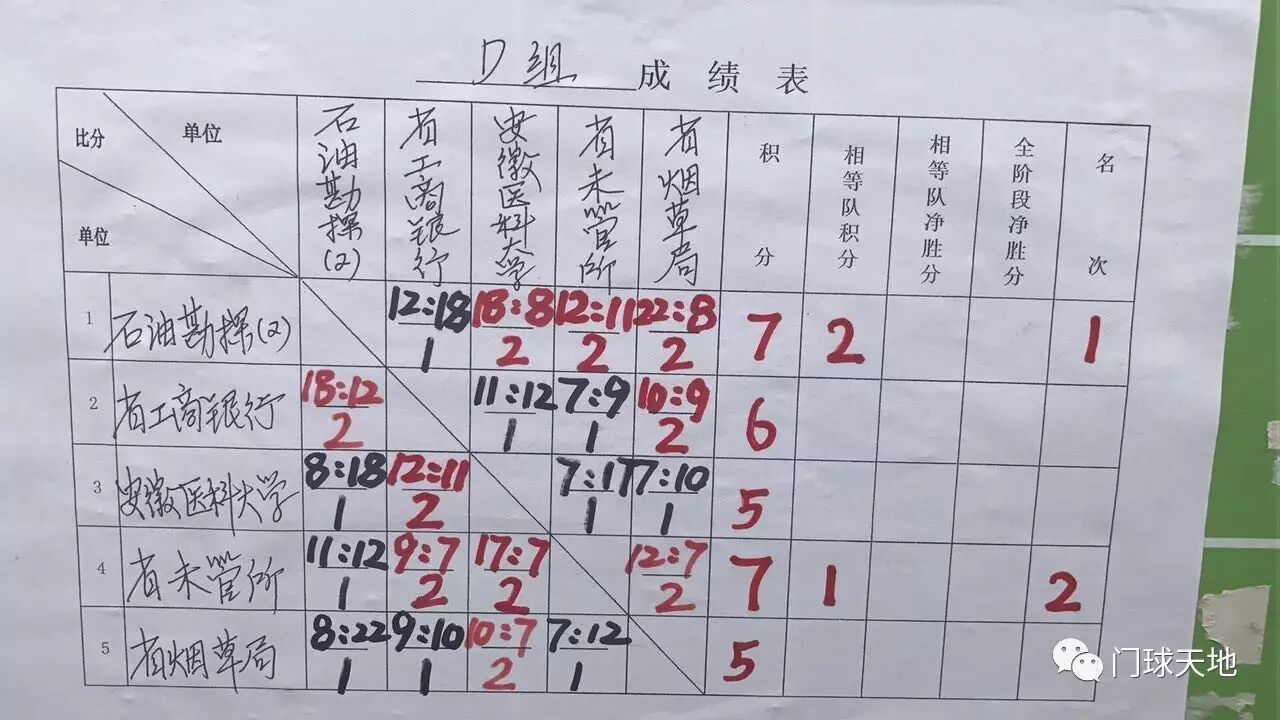 D组 成绩表
比分 单位 单位 石油勘探(2) 省工商银行 安徽医科大学 省未管所 省烟草局 积分 相等队积分 相等队净胜分 全阶段净胜分 名次
1 石油勘探(2) 12:18 18:8 12:11 22:8 7 2 1
1 2 2 2
2 省工商银行 18:12 11:12 7:9 10:9 6
2 1 1 2
3 安徽医科大学 8:18 12:11 7:17 7:10 5
1 2 1 1
4 省未管所 11:12 9:7 17:7 12:7 7 1 2
1 2 2 2
5 省烟草局 8:22 9:10 10:7 7:12 5
1 1 2 1
门球天地